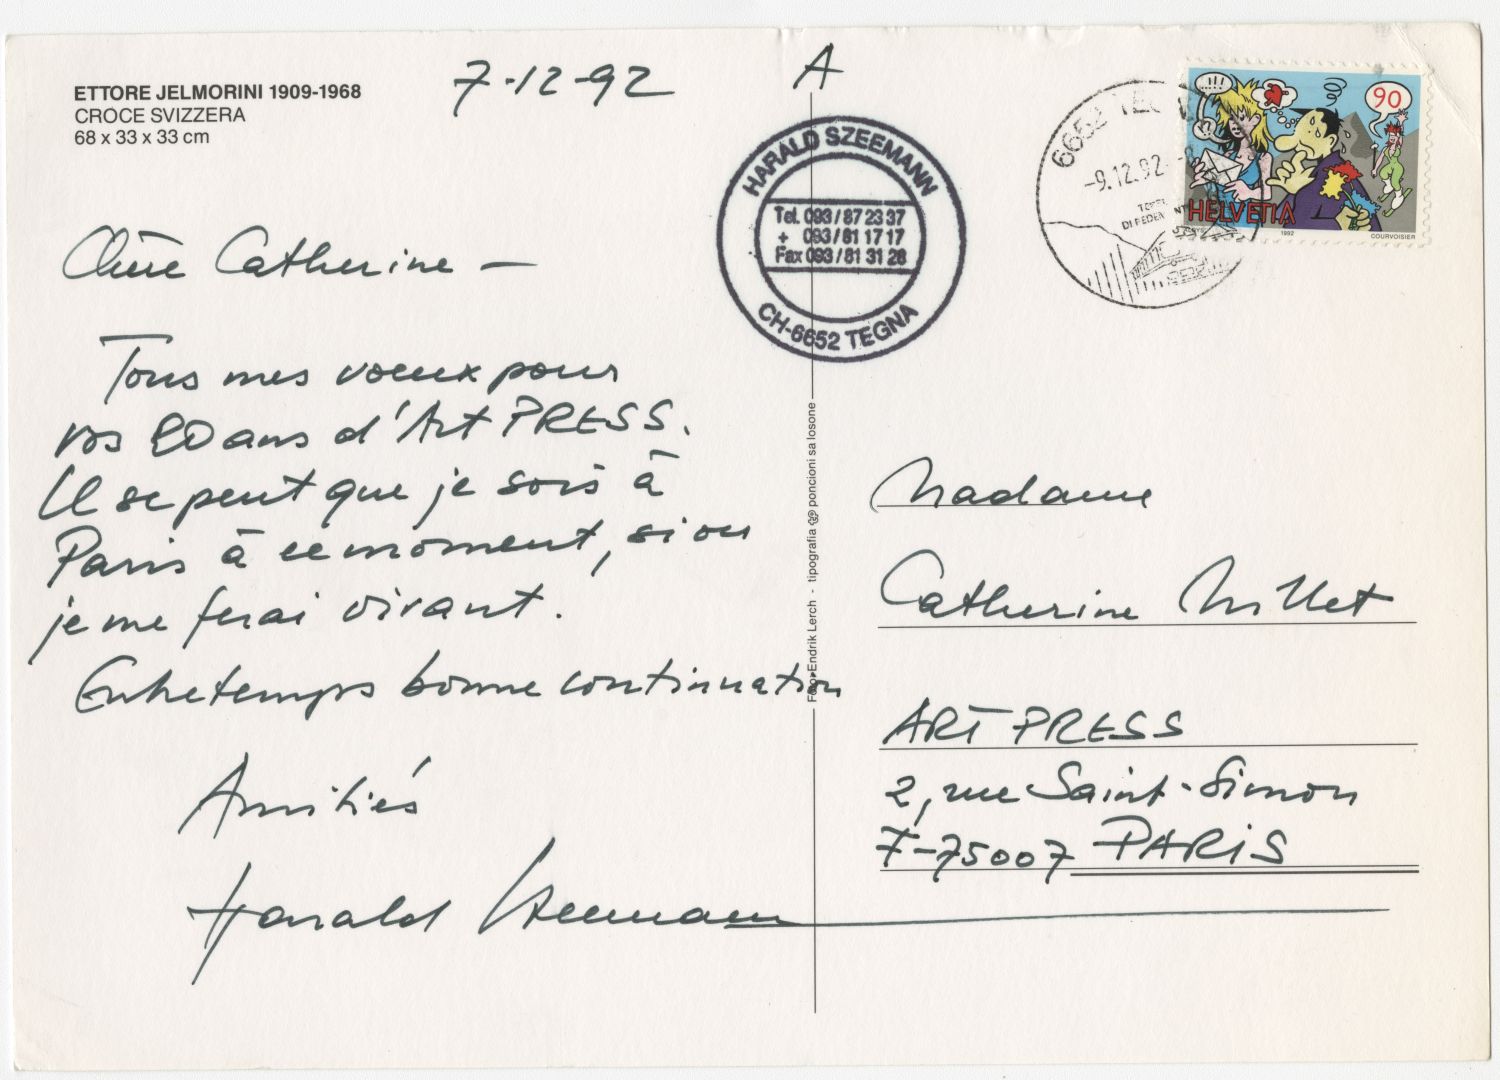 ETTORE JELMORINI 1909-1968
CROCE SVIZZERA
68 x 33 x 33 cm
7-12-92
A
HARALD SZEEMANN
Tel. 093 / 87 23 37
+ 093 / 81 17 17
Fax 093 / 81 31 28
CH-6652 TEGNA
Chère Catherine —
Tous mes voeux pour
vos 20 ans d'Art PRESS.
Il se peut que je sois à
Paris à ce moment, si oui
je me ferai vivant.
Entretemps bonne continuation
Amitiés
Harald Szeemann
Foto Endrik Lerch - tipografia poncioni sa losone
6652 TEG
-9.12.92
DI PEDE
!!!
90
HELVETIA
1992
COURVOISIER
Madame
Catherine Millet
ART PRESS
2, rue Saint-Simon
F-75007 PARIS